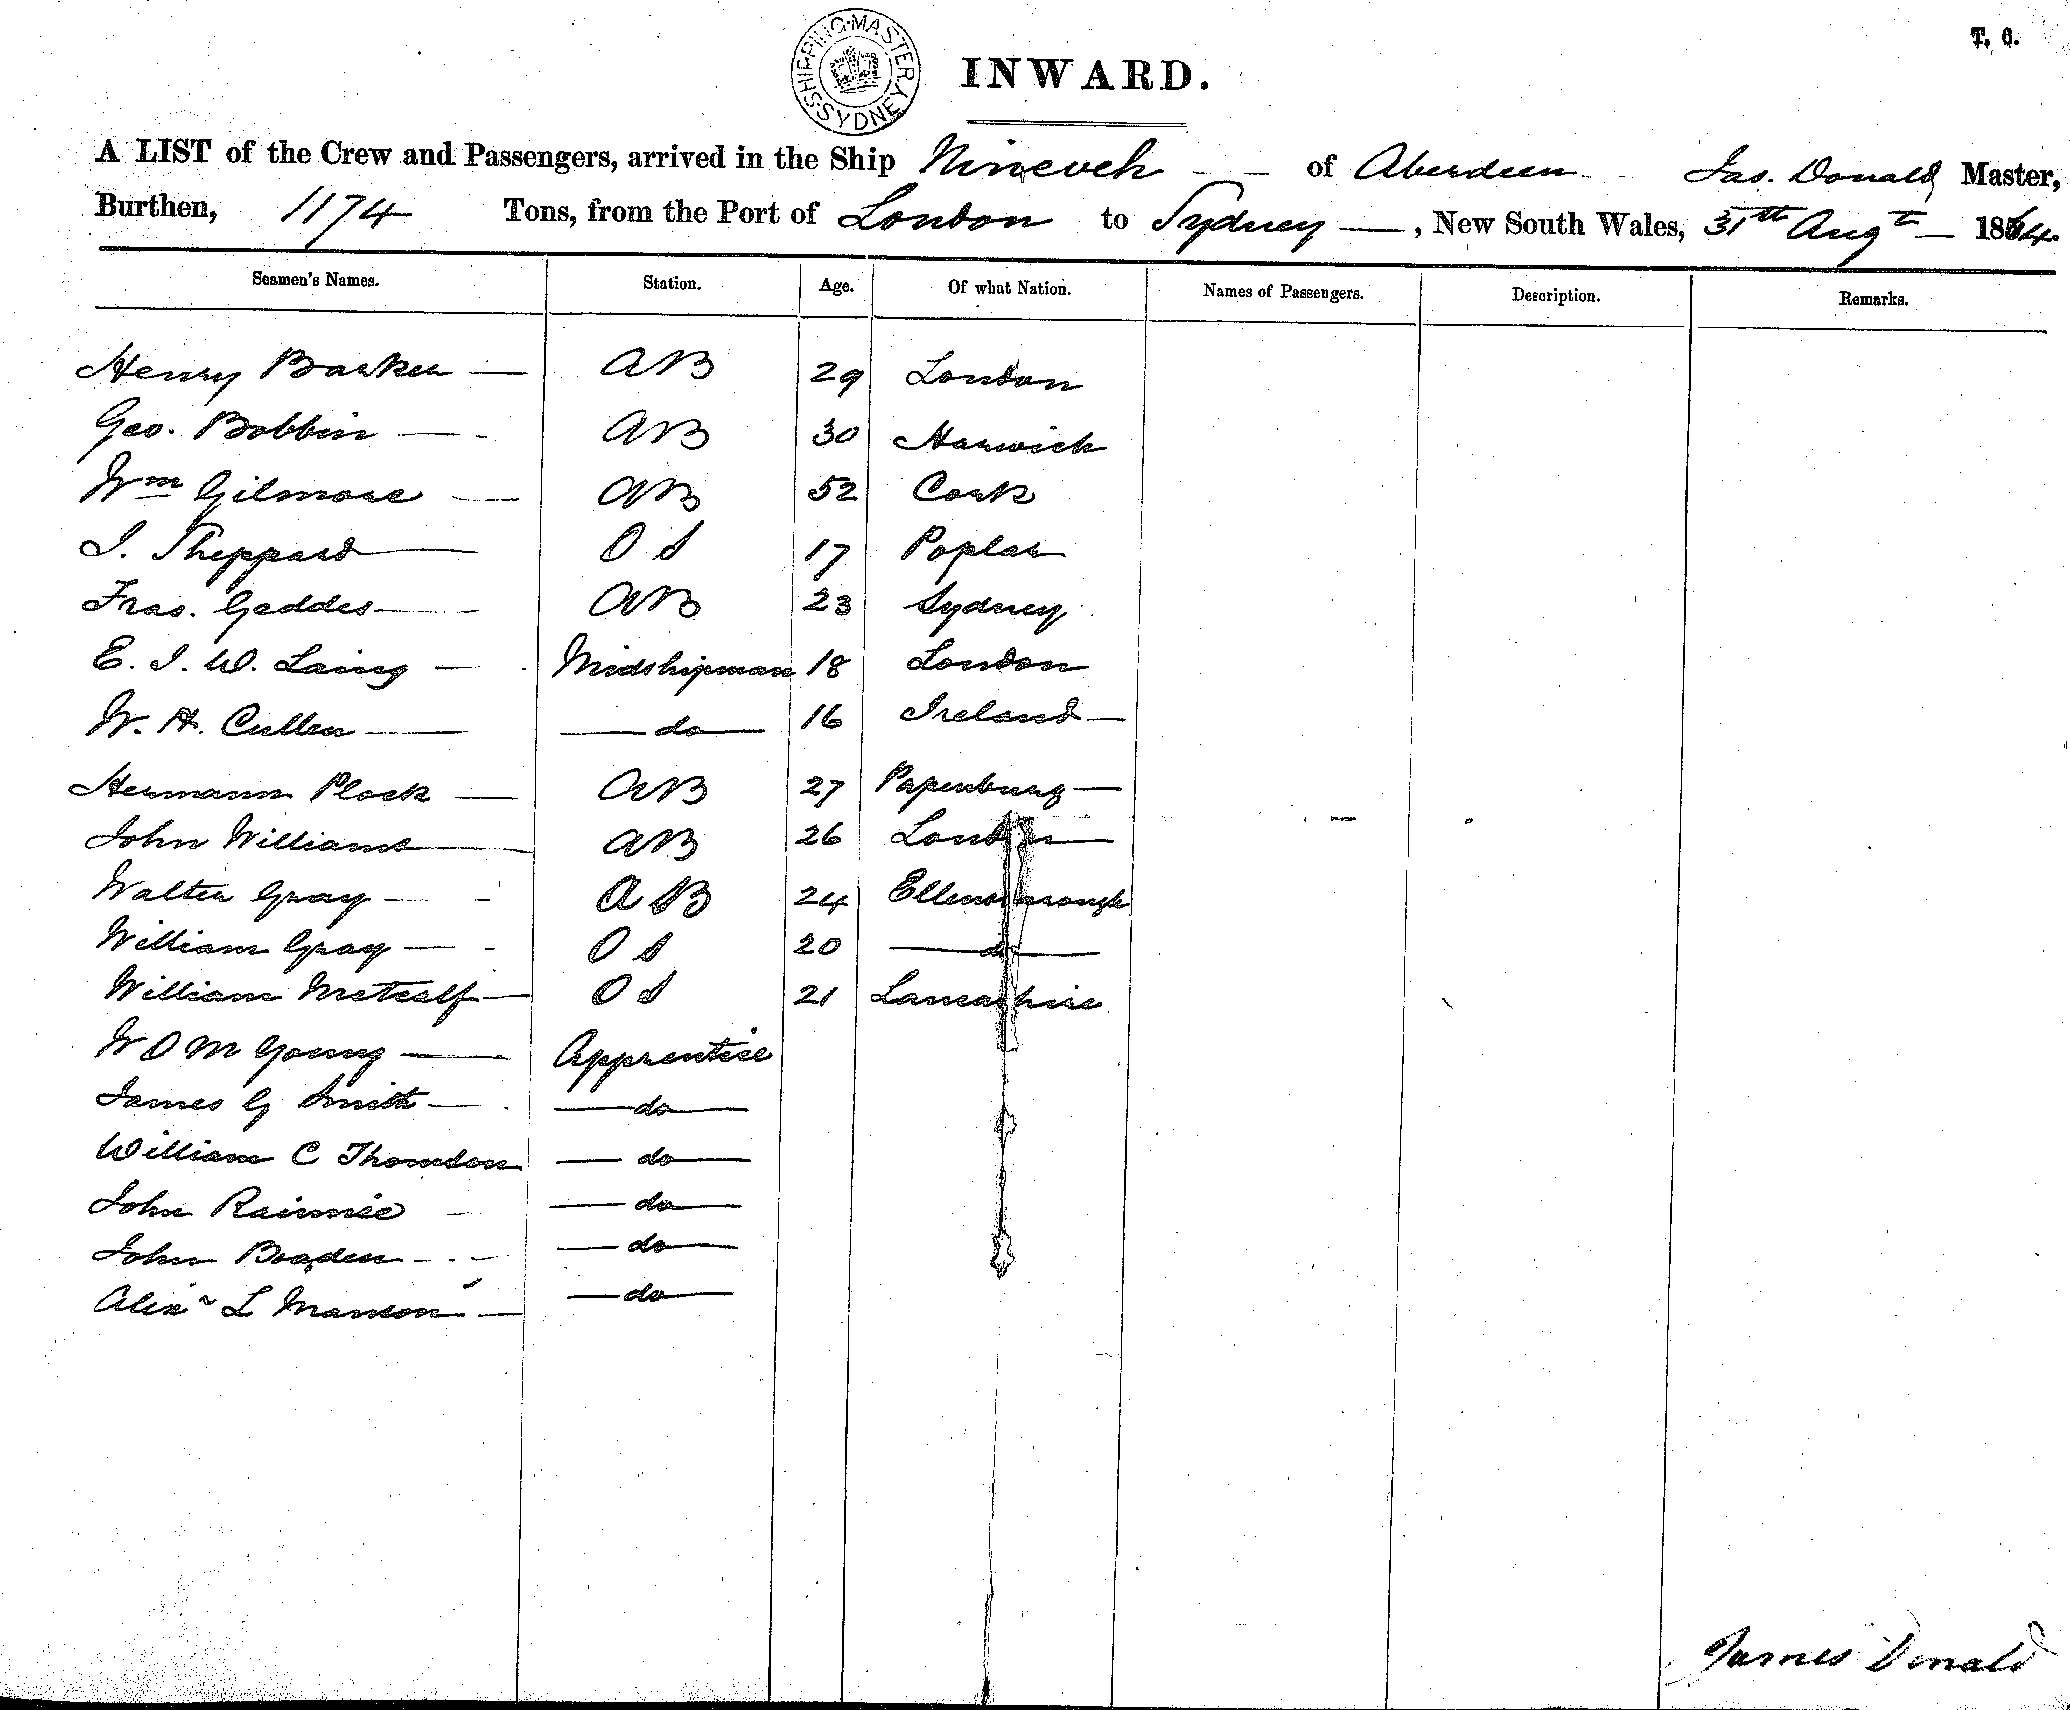 SHIPPING MASTER SYDNEY
T. C.
INWARD.
A LIST of the Crew and Passengers, arrived in the Ship Nineveh — of Aberdeen Jas. Donald Master,
Burthen, 1174 Tons, from the Port of London to Sydney —, New South Wales, 31th Augt — 1864
Seamen's Names. Station. Age. Of what Nation. Names of Passengers. Description. Remarks.
Henry Barker — AB 29 London
Geo. Bobbin — AB 30 Harwich
Wm Gilmore — AB 52 Cork
J. Sheppard — O S 17 Poplar
Fras. Geddes — AB 23 Sydney
E. J. W. Laing — Midshipman 18 London
W. H. Cullen — do 16 Ireland —
Hermann Plock — AB 27 Papenburg —
John Williams — AB 26 London —
Walter Gray — AB 24 Ellenborough
William Gray — O S 20 — do —
William Metcalf — O S 21 Lancashire
W O M Young — Apprentice
James G Smith — do —
William C Thomson — do —
John Rainnie — do —
John Boaden — do —
Alexr L Manson — do —
James Donald